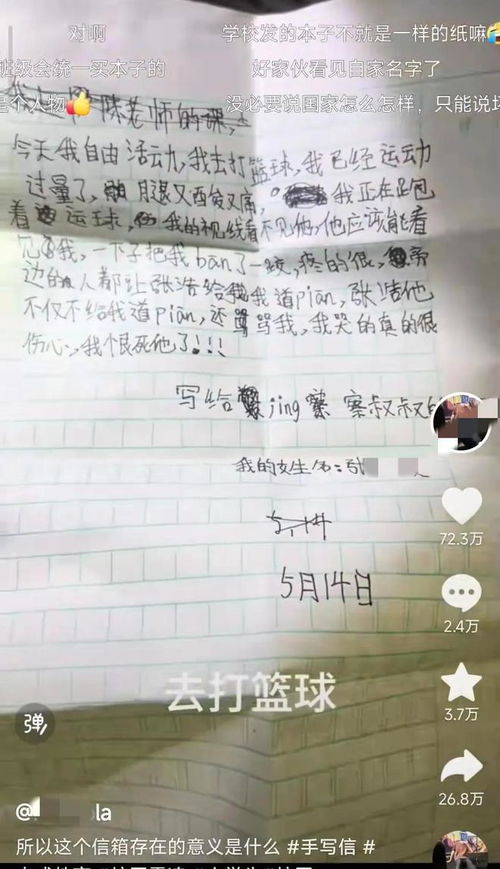 对啊
学校发的本子不就是一样的纸嘛
班级会统一买本子的
好家伙看见自家名字了
是个人物
没必要说国家怎么怎样，只能说坏
陈老师的课，
今天我自由活动九，我去打篮球，我已经运动
过量了，腿又酉发又疼，我正在跑
着运球，我的视线看不见他，他应该能看
见我，一下子把我ban了一跤，疼的很，旁
边的人都让张浩给我道pian，张浩他
不仅不给我道pian，还骂我，我哭的真的很
伤心，我恨死他了！！！
写给jing察叔叔的
我的女生名：张
5月14日
去打篮球
弹
72.3万
2.4万
3.7万
26.8万
@la
所以这个信箱存在的意义是什么 #手写信 #